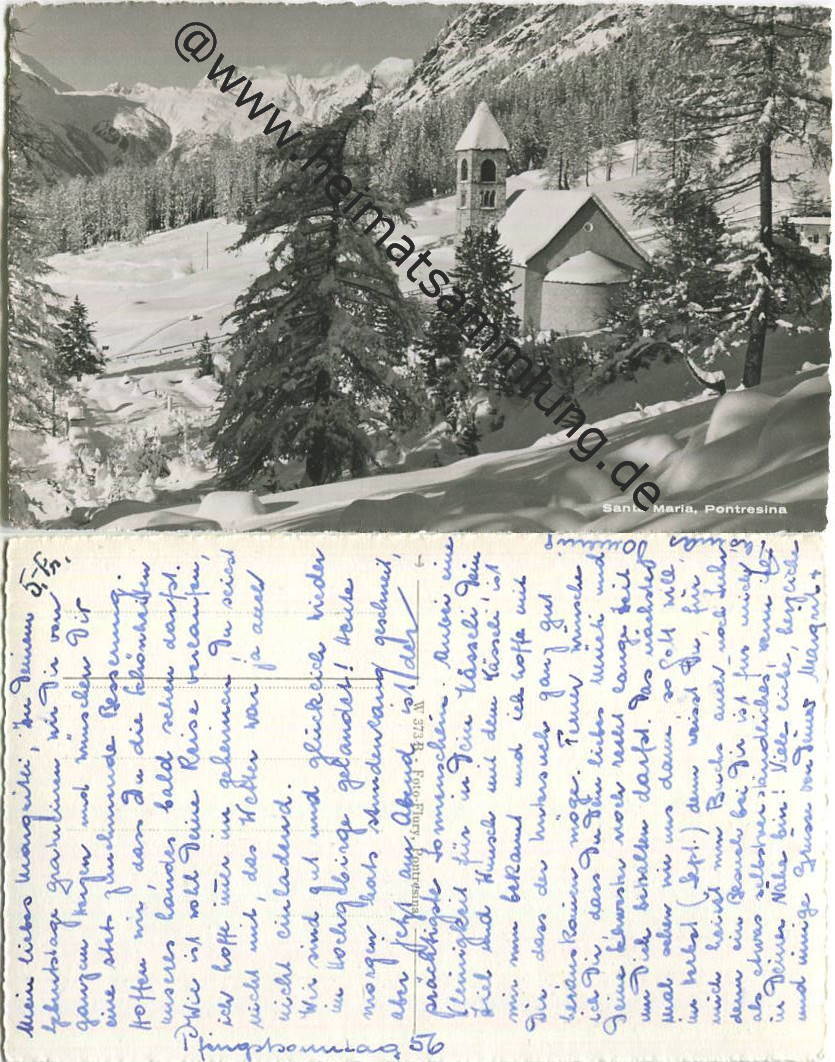 @www.heimatsammlung.de
Santa Maria, Pontresina
Pfingstsonntag 56
Mein liebes Margritli, zu Deinem
Geburtstage gratulieren wir Dir von
ganzem Herzen und wünschen Dir
eine stets zunehmende Besserung.
Hoffen wir, dass Du die Schönheiten
unseres Landes bald sehen darfst.
Wie ist wohl Deine Reise verlaufen,
ich hoffte immer im geheimen Du seiest
nicht mit, das Wetter war ja auch
nicht einladend.
Wir sind gut und glücklich wieder
im Hochgebirge gelandet! Heute
morgen hats stundenlang geschneit,
aber jetzt am Abend ist der
W 373 B. Foto-Flury, Pontresina
prächtigste Sonnenschein. Anbei eine
Kleinigkeit für in Dein Kässeli. Dein
Ziel und Wunsch mit dem Kässeli ist
mir nun bekannt und ich hoffe mit
Dir, dass der Untersuch ganz gut
herauskommen möge. Ferner wünsche
ich Dir, dass Du Dein liebes Mütti und
Deine noch recht lange Zeit
um Dich behalten darfst. Das nächste
Mal sehen wir uns dann, so Gott will,
im Herbst (Sept.) denn weisst Du, für
mich heisst mein Buchs auch noch sehr
denn ein Besuch bei Dir ist für mich
als etwas selbstverständliches wenn ich
in Deiner Nähe bin! Viele liebe, herzliche
und innige Grüsse von Deiner